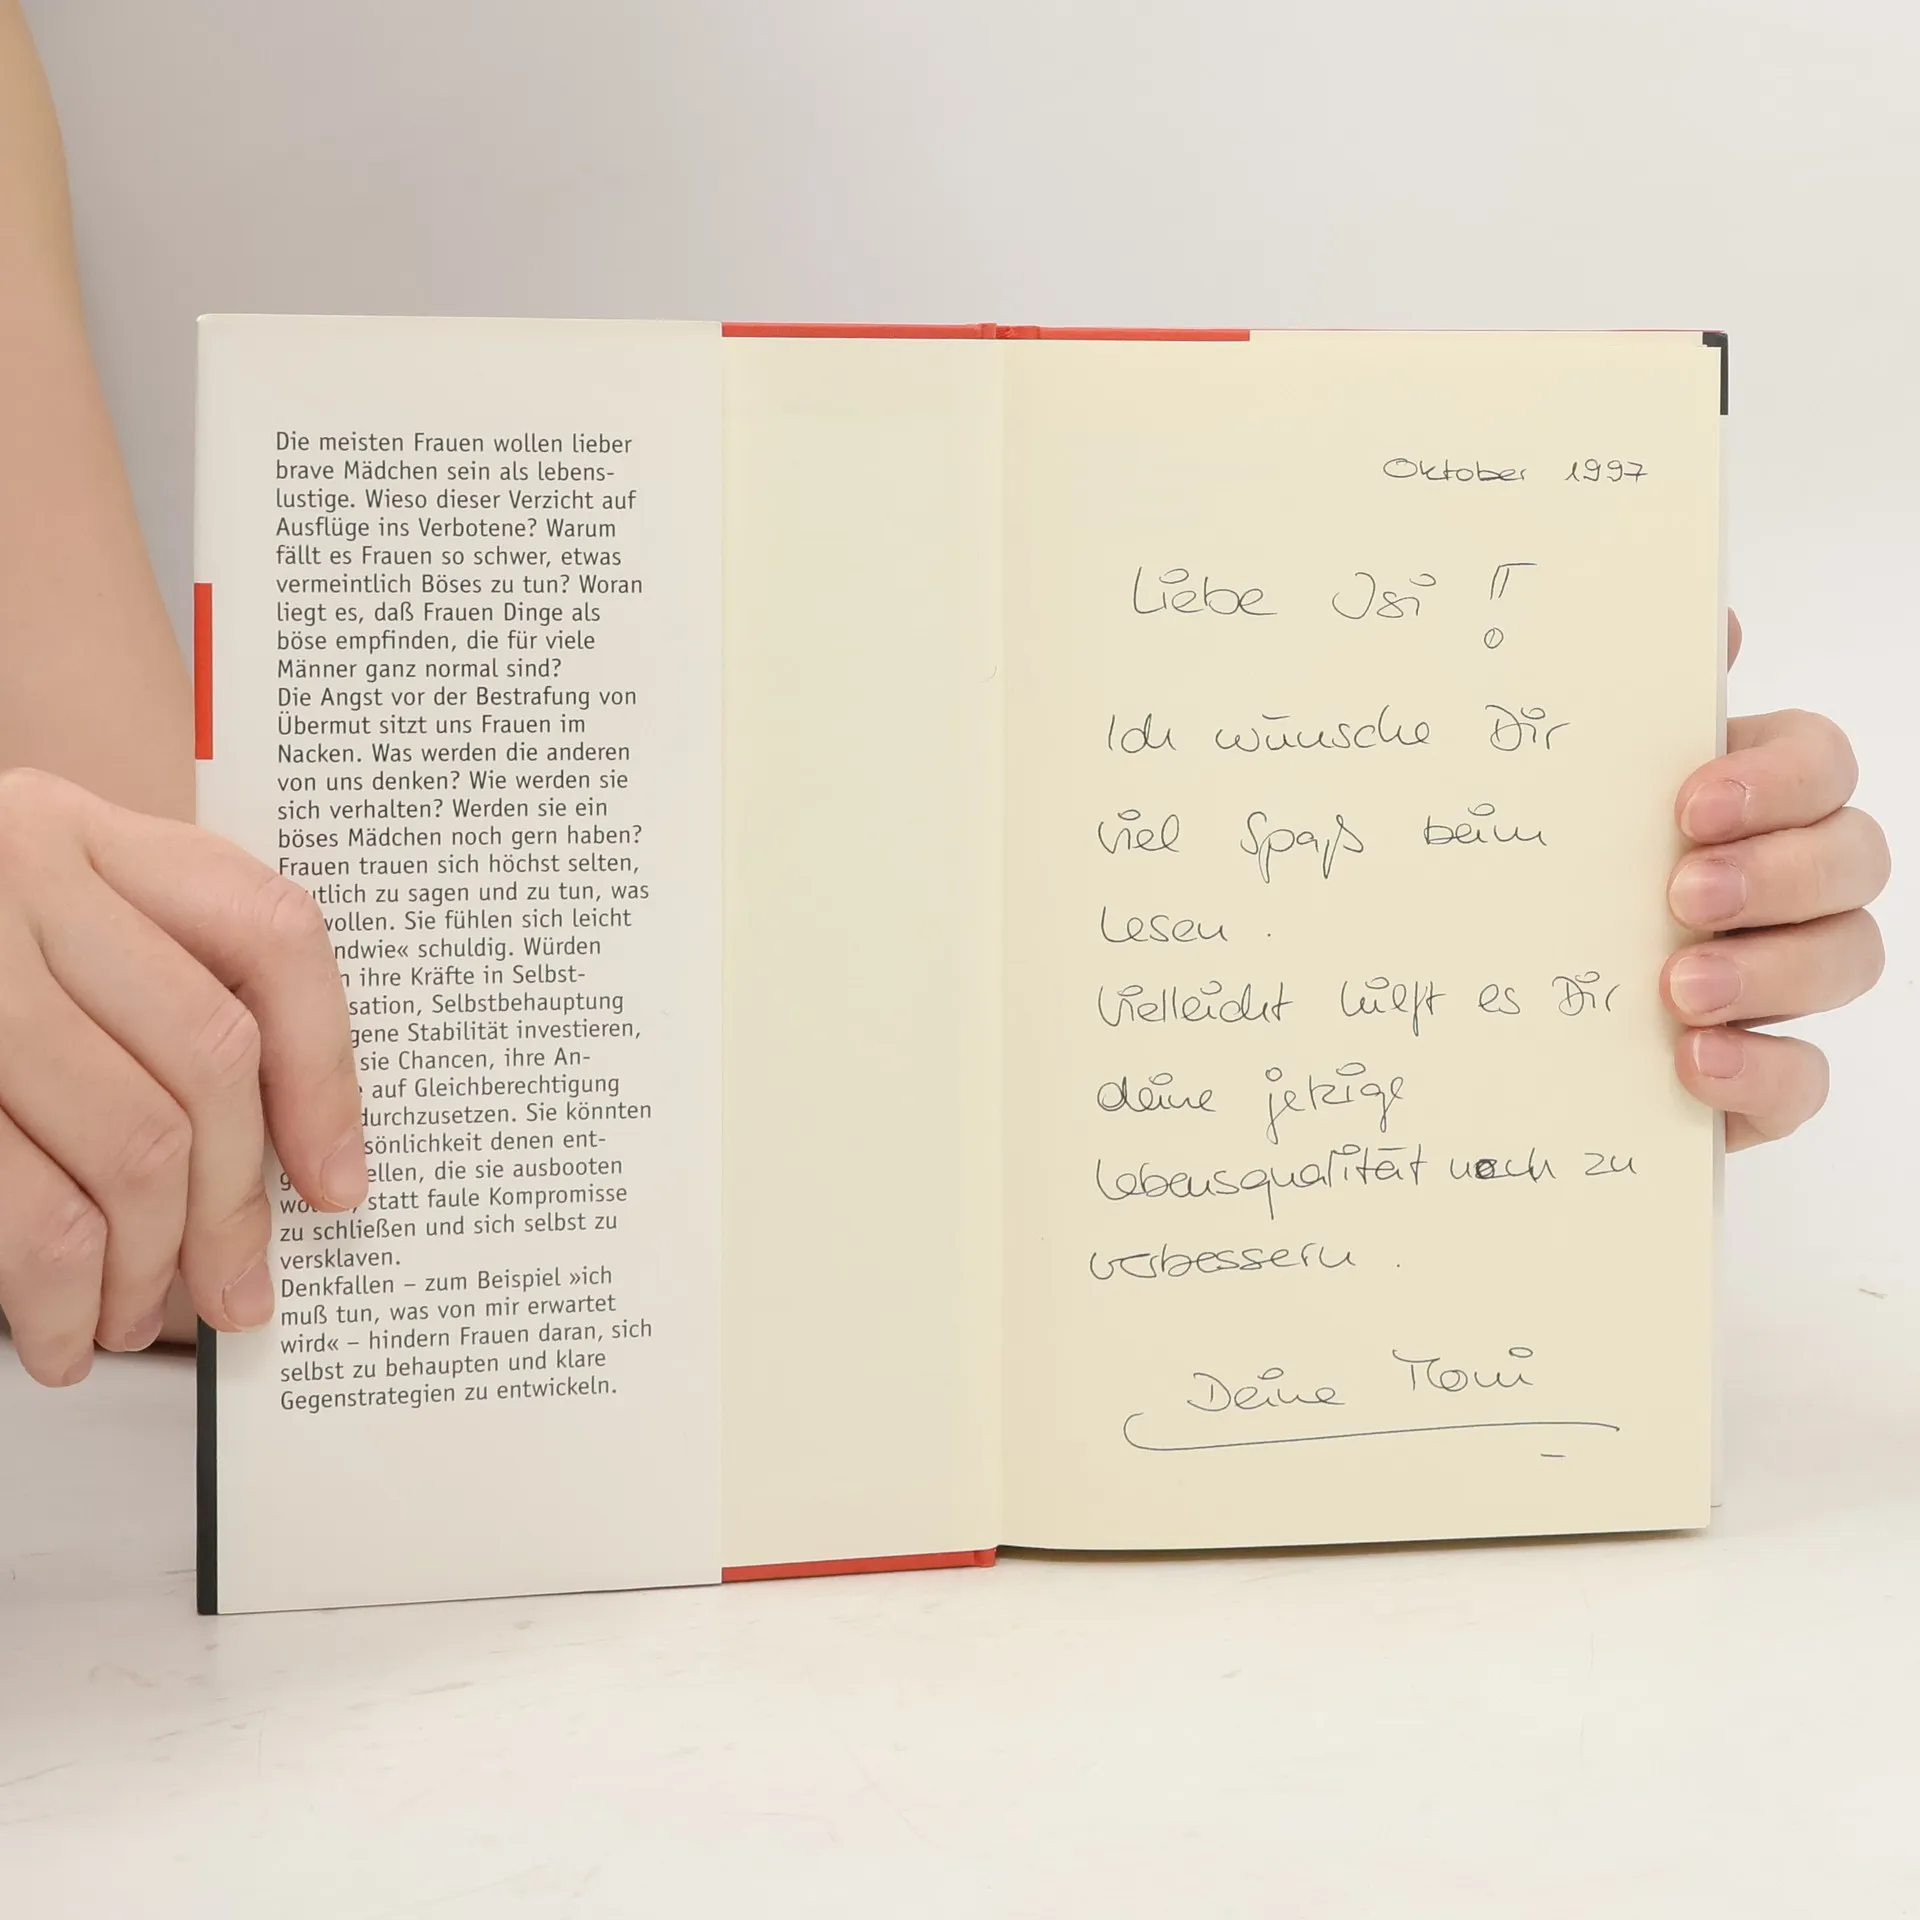 Die meisten Frauen wollen lieber
brave Mädchen sein als lebens-
lustige. Wieso dieser Verzicht auf
Ausflüge ins Verbotene? Warum
fällt es Frauen so schwer, etwas
vermeintlich Böses zu tun? Woran
liegt es, daß Frauen Dinge als
böse empfinden, die für viele
Männer ganz normal sind?
Die Angst vor der Bestrafung von
Übermut sitzt uns Frauen im
Nacken. Was werden die anderen
von uns denken? Wie werden sie
sich verhalten? Werden sie ein
böses Mädchen noch gern haben?
Frauen trauen sich höchst selten,
zu sagen und zu tun, was
Sie fühlen sich leicht
schuldig. Würden
ihre Kräfte in Selbst-
Selbstbehauptung
Stabilität investieren,
sie Chancen, ihre An-
auf Gleichberechtigung
durchzusetzen. Sie könnten
denen ent-
die sie ausbooten
statt faule Kompromisse
zu schließen und sich selbst zu
versklaven.
Denkfallen – zum Beispiel »ich
muß tun, was von mir erwartet
wird« – hindern Frauen daran, sich
selbst zu behaupten und klare
Gegenstrategien zu entwickeln.
Oktober 1997
Liebe Isi !!
Ich wünsche Dir
viel Spaß beim
Lesen.
Vielleicht hilft es Dir
deine jetzige
Lebensqualität noch zu
verbessern.
Deine Moni